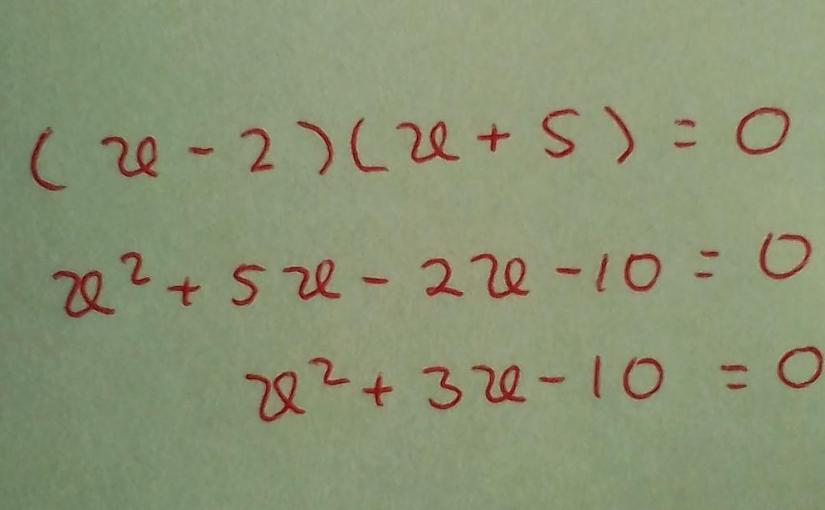 (x - 2)(x + 5) = 0
x² + 5x - 2x - 10 = 0
x² + 3x - 10 = 0